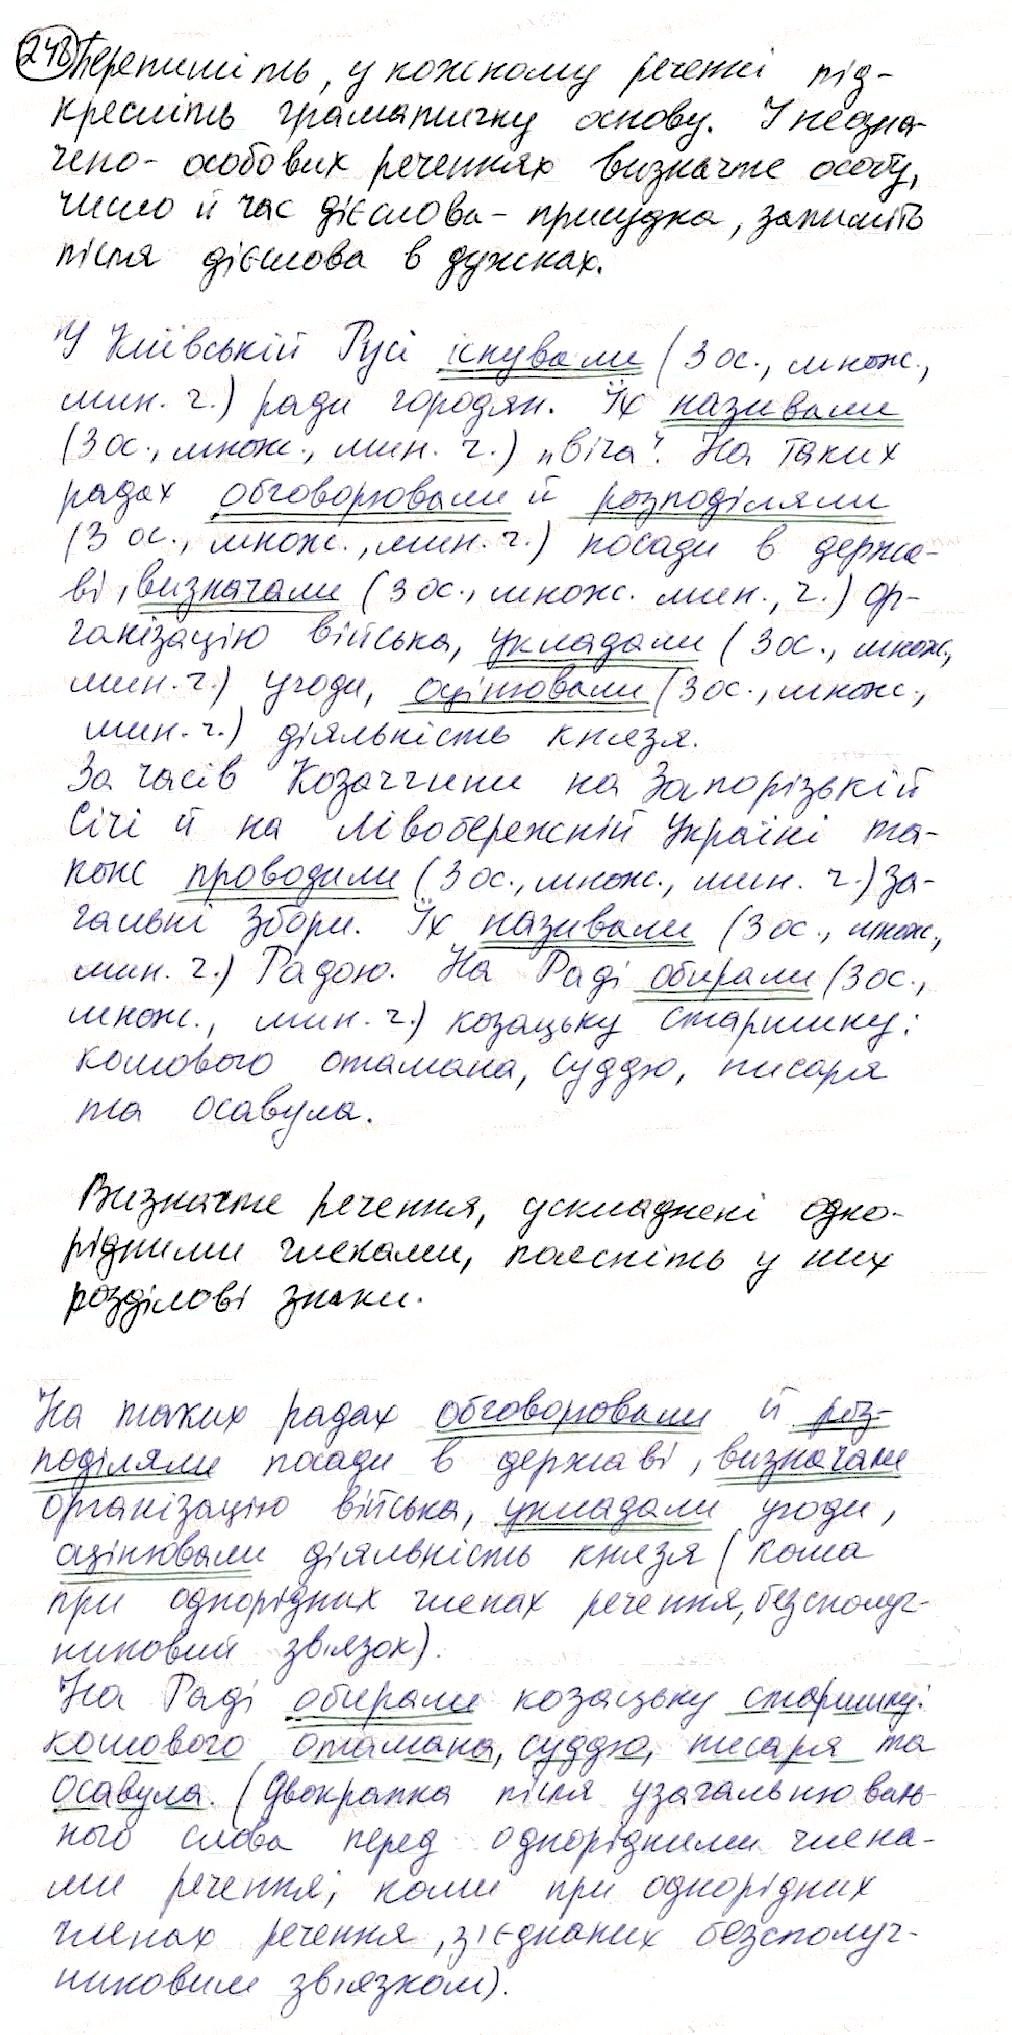 248 Перепишіть, у кожному реченні під-
кресліть граматичну основу. У неозна-
чено-особових реченнях визначте особу,
число й час дієслова-присудка, запишіть
після дієслова в дужках.
У Київській Русі існували (3 ос., множ.,
мин. ч.) ради городян. Їх називали
(3 ос., множ., мин. ч.) „віча". На таких
радах обговорювали й розподіляли
(3 ос., множ., мин. ч.) посади в держа-
ві, визначали (3 ос., множ. мин., ч.) ор-
ганізацію війська, укладали (3 ос., множ,
мин. ч.) угоди, оцінювали (3 ос., множ.,
мин. ч.) діяльність князя.
За часів Козаччини на Запорізькій
Січі й на Лівобережній Україні та-
кож проводили (3 ос., множ., мин. ч.) за-
гальні збори. Їх називали (3 ос., множ,
мин. ч.) Радою. На Раді обирали (3 ос.,
множ., мин. ч.) козацьку старшину:
кошового отамана, суддю, писаря
та осавула.
Визначте речення, ускладнені одно-
рідними членами, поясніть у них
розділові знаки.
На таких радах обговорювали й роз-
поділяли посади в державі, визначали
організацію війська, укладали угоди,
оцінювали діяльність князя (кома
при однорідних членах речення, безсполуч-
никовий зв'язок).
На Раді обирали козацьку старшину:
кошового отамана, суддю, писаря та
осавула. (Двокрапка після узагальнюваль-
ного слова перед однорідними члена-
ми речення; коми при однорідних
членах речення, з'єднаних безсполуч-
никовим зв'язком).